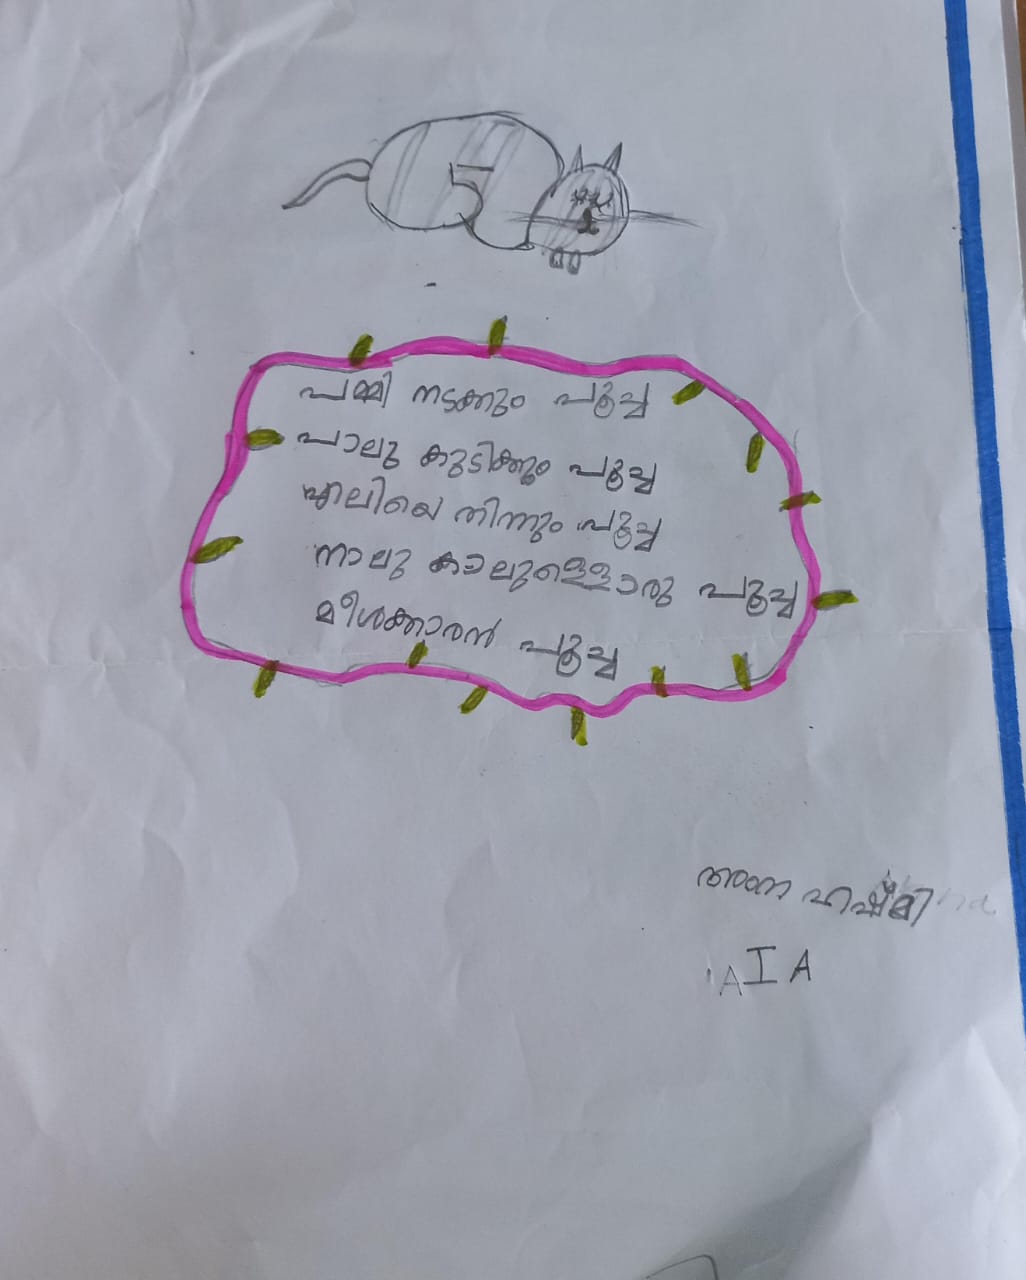 പമ്മി നടക്കും പൂച്ച
പാലു കുടിക്കും പൂച്ച
എലിയെ തിന്നും പൂച്ച
നാലു കാലുള്ളൊരു പൂച്ച
മീശക്കാരൻ പൂച്ച
I A